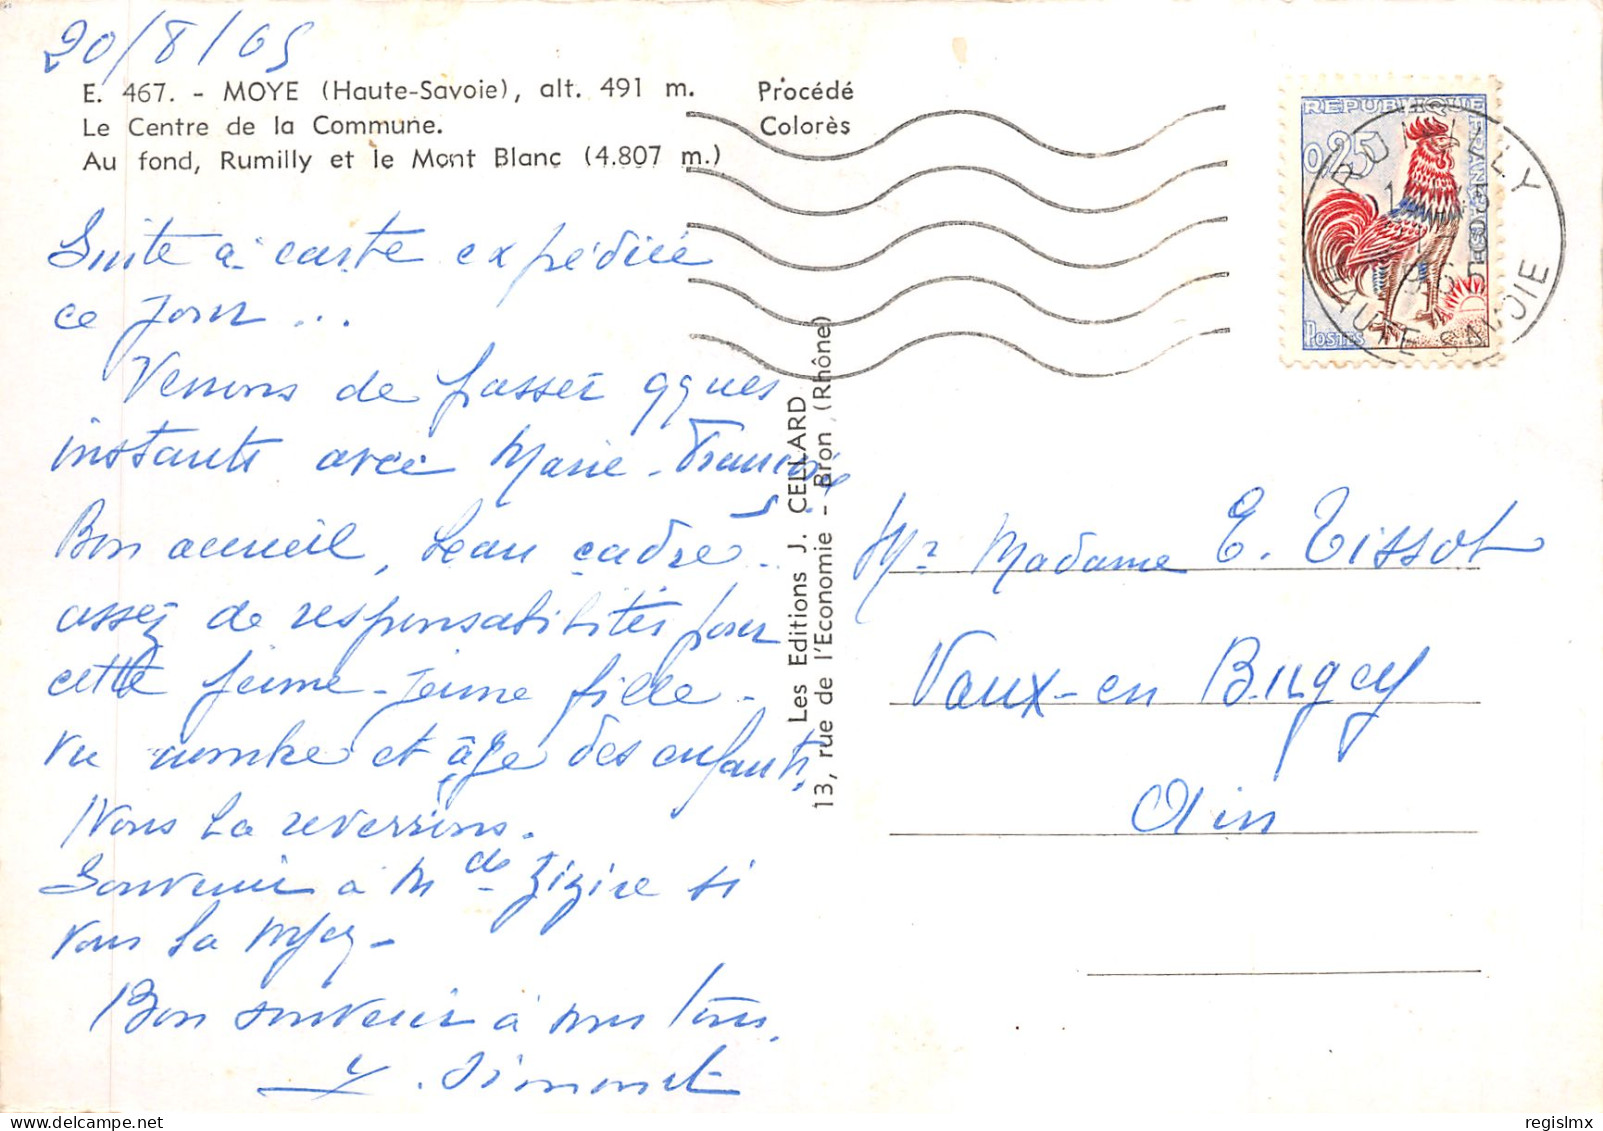 20/8/65
E. 467. - MOYE (Haute-Savoie), alt. 491 m.
Le Centre de la Commune.
Au fond, Rumilly et le Mont Blanc (4.807 m.)
Procédé
Colorès
Suite à carte expédiée
ce jour ...
Venons de passer qques
instants avec Marie-Françoise
Bon accueil, beau cadre.
assez de responsabilités pour
cette jeune-jeune fille -
vu nombre et âge des enfants.
Nous la reverrons.
Souvenir à Mde Zizire si
vous la
Bon souvenir à vous tous.
Y. Simonet
Les Editions J. CELLARD
13, rue de l'Economie - Bron (Rhône)
REPUBLIQUE FRANÇAISE
0,25
POSTES
RUMILLY
HAUTE-SAVOIE
Mr Madame E. Tissot
Vaux-en Bugey
Ain
regislmx